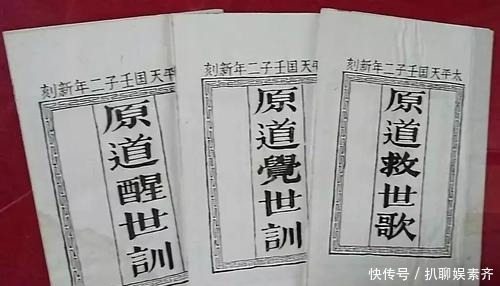 太平天囯壬子二年新刻
原道救世歌
平天囯壬子二年新刻
原道覺世訓
平天囯壬子二年新刻
原道醒世訓
快传号 / 扒聊娱素齐